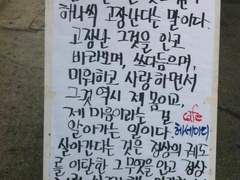 하나씩 고장난다는 말이다.
고장난 그것을 안고
바라보며, 쓰다듬으며,
미워하고 사랑하면서
그것 역시 제 몸이고
제 마음이라는 걸
알아가는 일이다.
cafe
헤세이티
살아간다는 것은 정상의 궤도
를 이탈한 그 몸을 안고